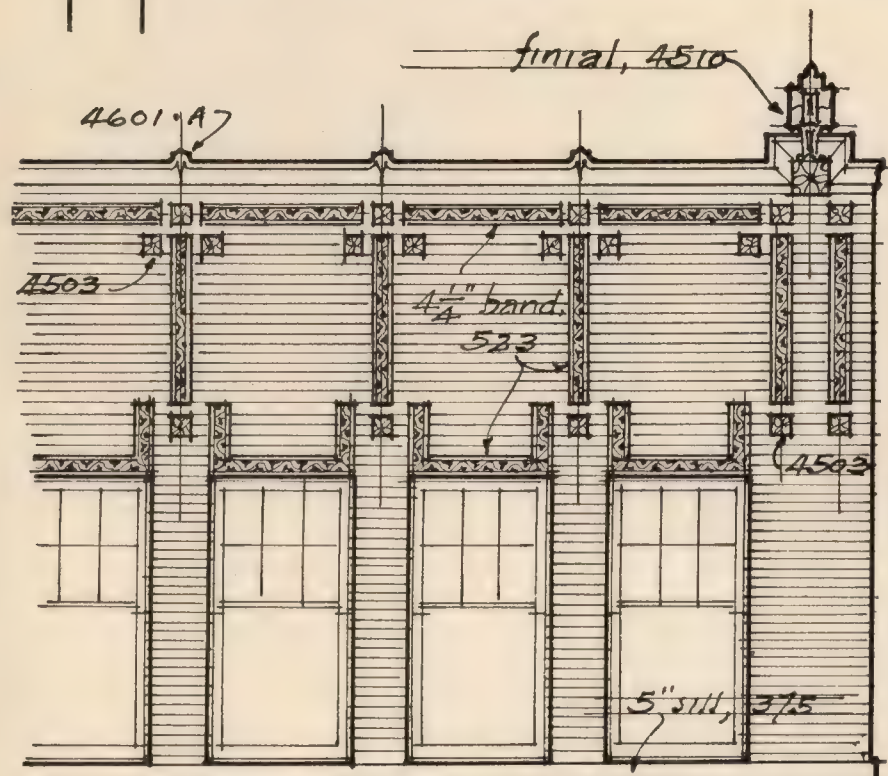 finial, 4510
4601·A
4503
4 1/4" band,
523
4503
5" sill, 375